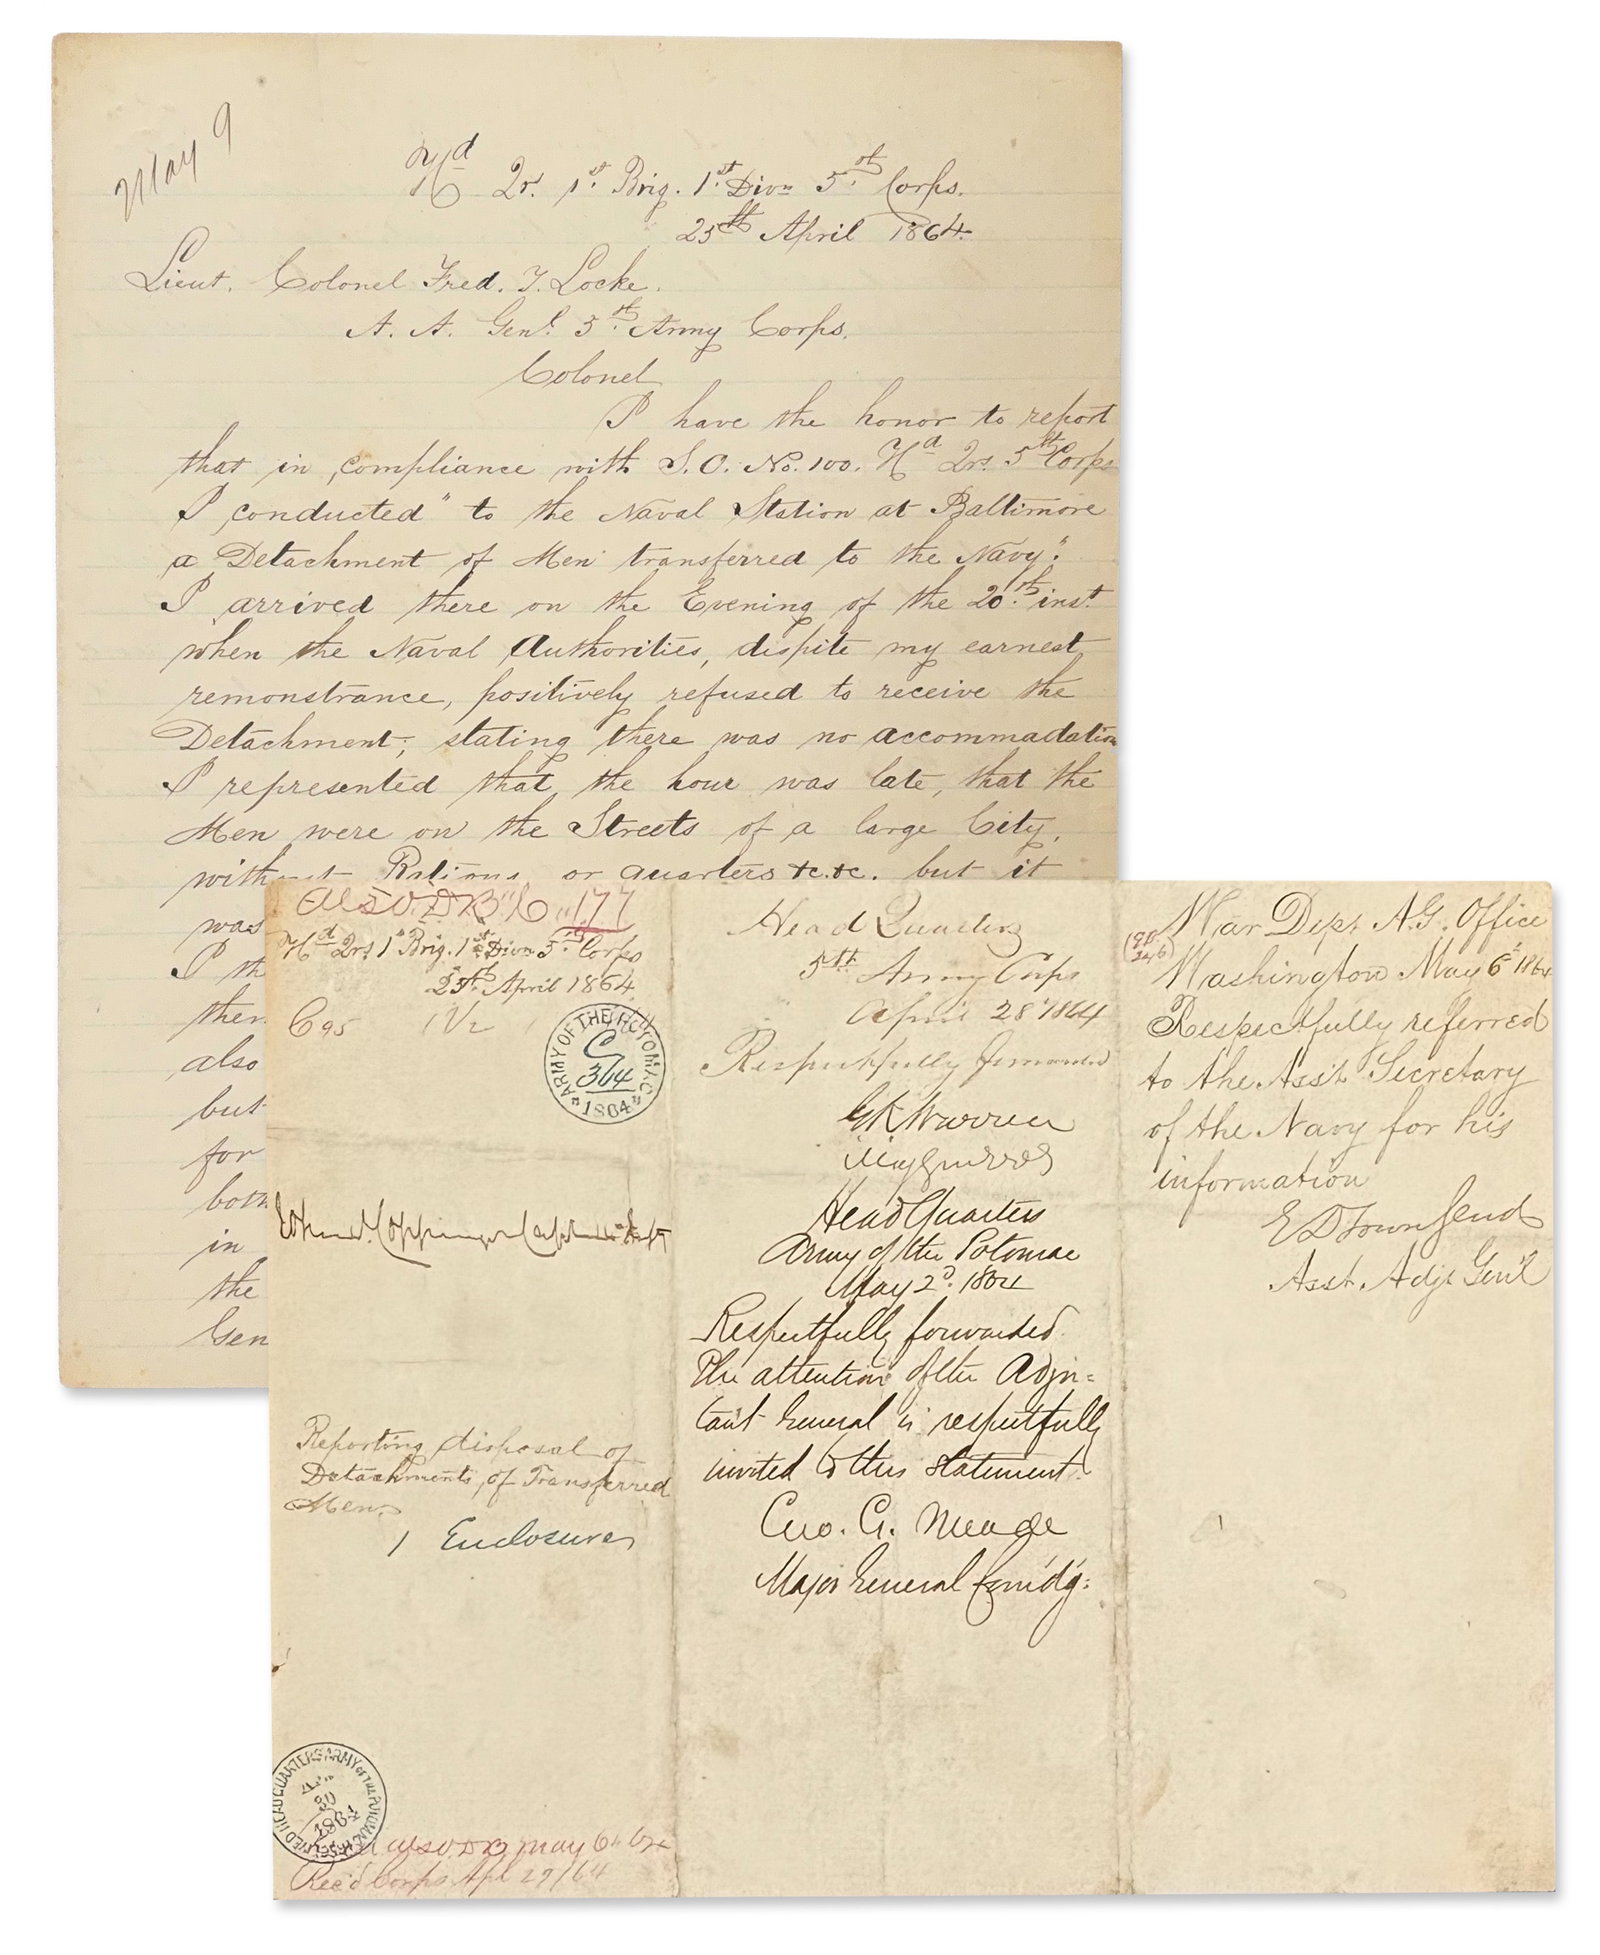 May 9
Hd Qrs. 1st. Brig. 1st Divn 5th. Corps.
25th April 1864.
Lieut. Colonel Fred. T. Locke.
A. A. Genl. 5th. Army Corps.
Colonel
I have the honor to report
that in compliance with S.O. No. 100. Hd Qrs. 5th Corps
I conducted "to the Naval Station at Baltimore
a Detachment of Men transferred to the Navy".
I arrived there on the Evening of the 20th. inst.
when the Naval Authorities, dispite my earnest
remonstrance, positively refused to receive the
Detachment, stating there was no accommadation
I represented that the hour was late, that the
Men were on the Streets of a large City,
without Rations or quarters &c. &c. but it
was
I th
then
also
but
for
both
in
the
Gen
177
Hd Qrs 1st Brig. 1st Divn 5th Corps
25th April 1864.
C 95
ARMY OF THE POTOMAC
C
364
1864
Reporting disposal of
Detachments, of Transferred
Men.
1 Enclosure
RECEIVED HEADQUARTERS ARMY OF THE POTOMAC
30
1864
May 6 64
Rec'd Corps Apl 29/64
Head Quarters
5th Army Corps
April 28 1864
Respectfully forwarded
GK Warren
Maj Genl Vols
Head Quarters
Army of the Potomac
May 2d. 1864
Respectfully forwarded.
The attention of the Adju=
tant General is respectfully
invited to this statement.
Geo. G. Meade
Major General Comd'g:
War Dept A.G. Office
Washington May 6 1864
Respectfully referred
to the Asst Secretary
of the Navy for his
information
E D Townsend
Asst. Adjt Gen'l